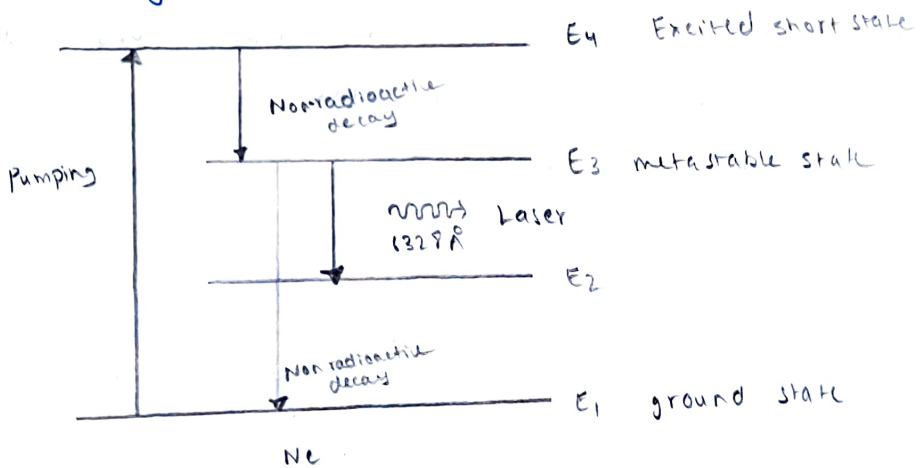 E4 Excited short state
Nonradioactive
decay
Pumping
E3 metastable state
Laser
6328 Å
E2
Nonradioactive
decay
E1 ground state
Ne